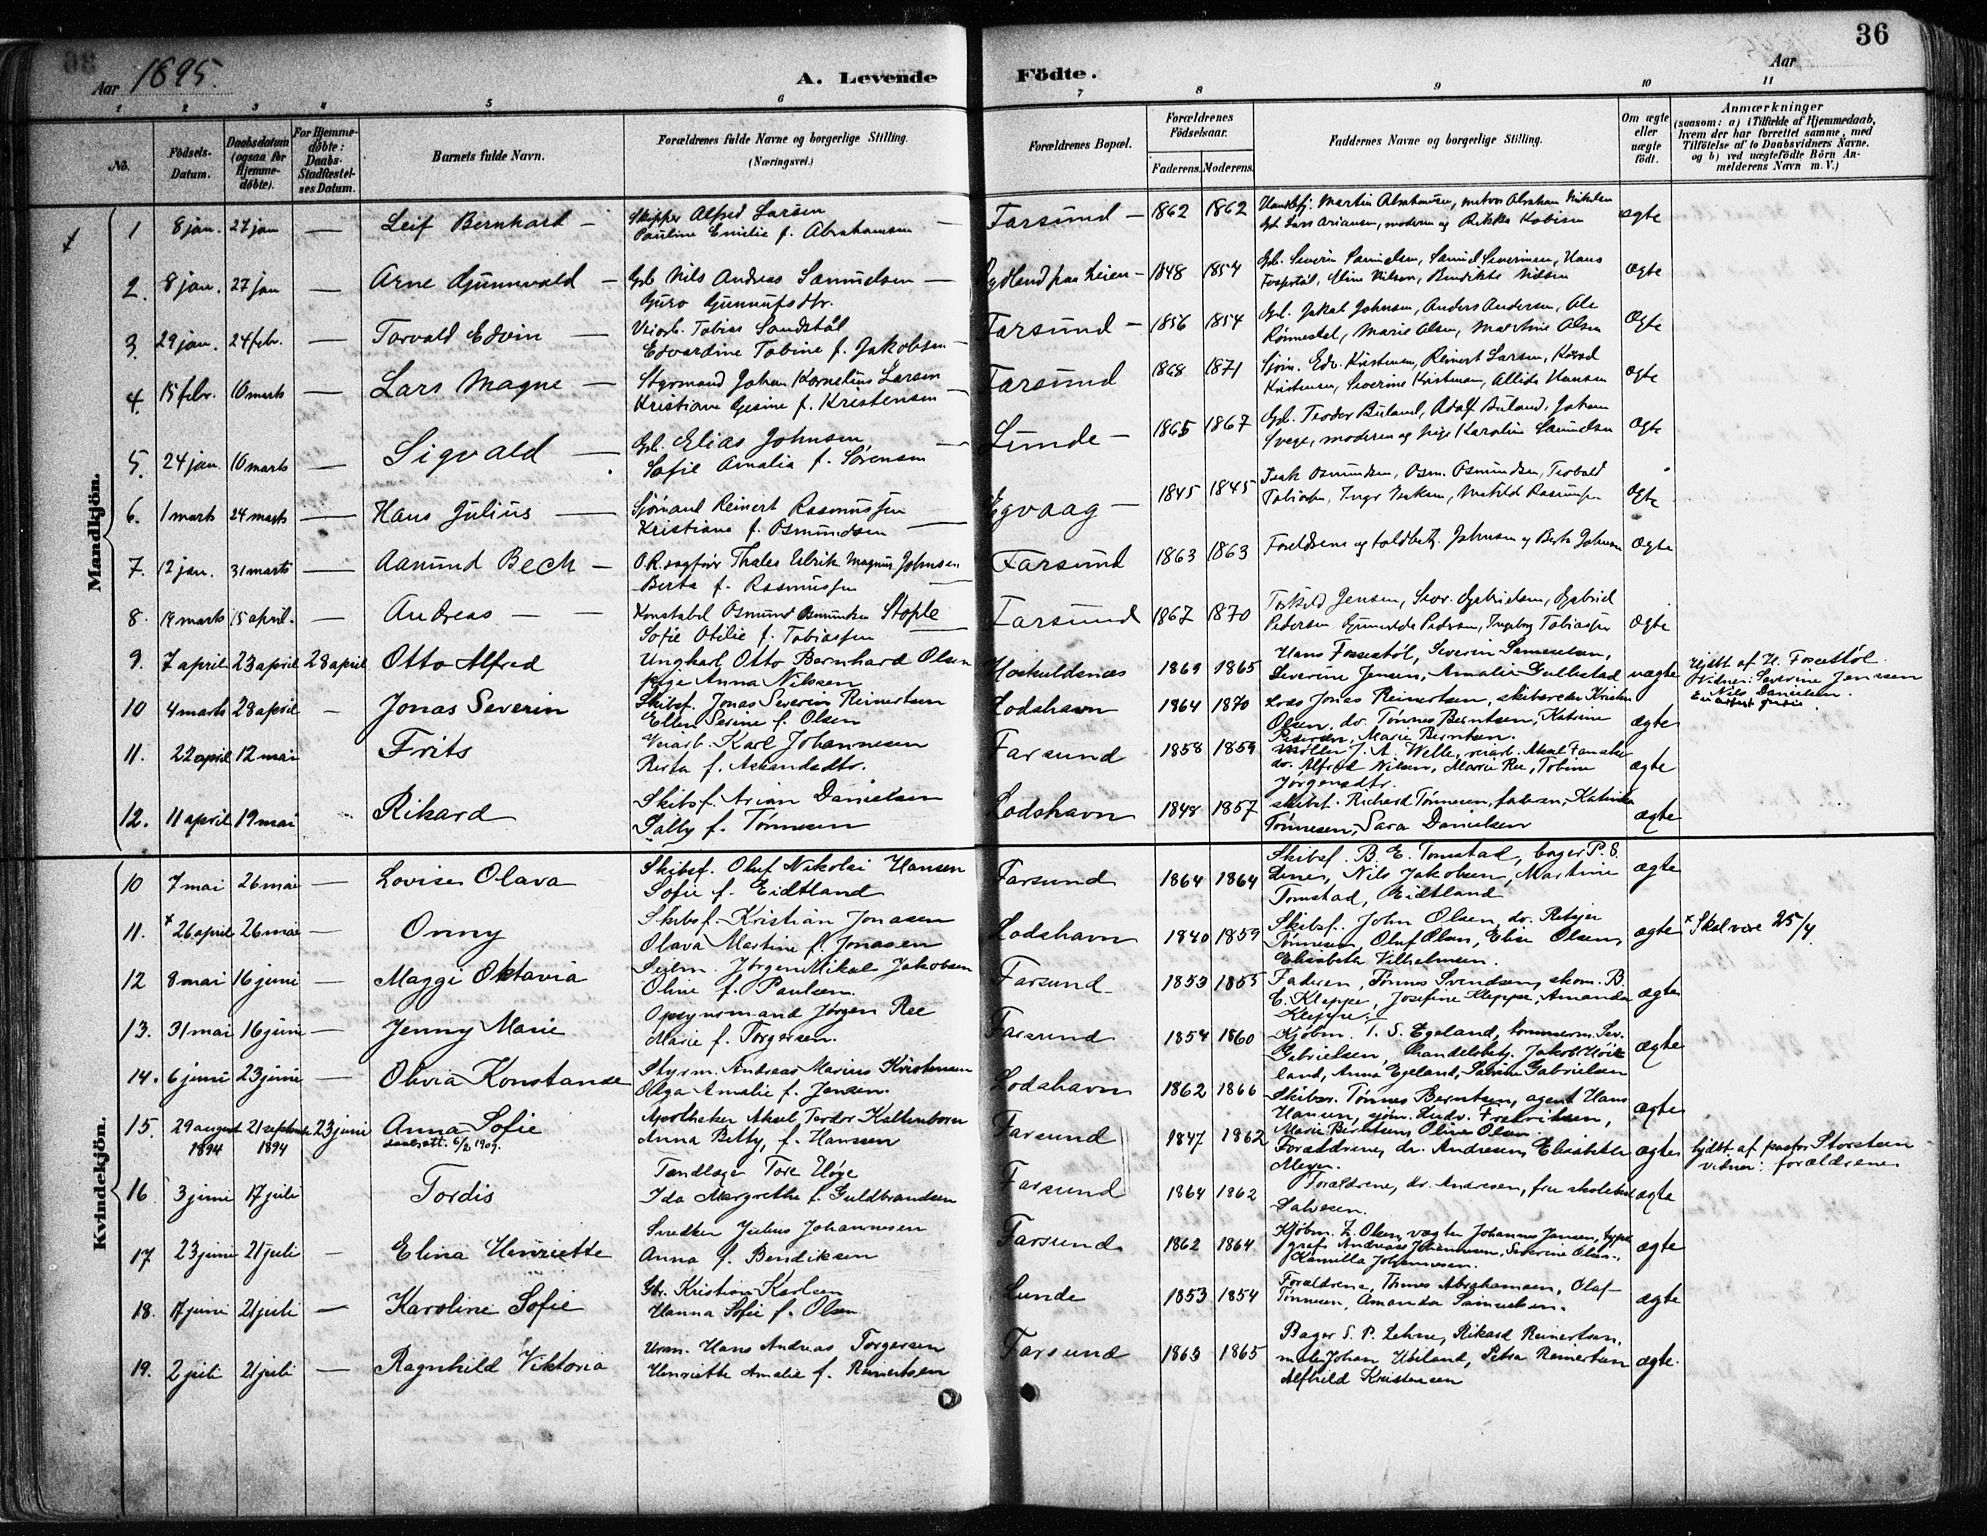 Aar 1895.
A. Levende
Födte.
Aar
36
1 2 3 4 5 6 7 8 9 10 11
No.
Födsels-Datum.
Daabsdatum (ogsaa for Hjemmedøbte).
For Hjemmedøbte: Daabs-Stadfæstelses Datum.
Barnets fulde Navn.
Forældrenes fulde Navne og borgerlige Stilling. (Næringsvei.)
Forældrenes Bopæl.
Forældrenes Födselsaar.
Faderens. Moderens.
Faddernes Navne og borgerlige Stilling.
Om ægte eller uægte födt.
Anmærkninger (saasom: a) i Tilfælde af Hjemmedaab, hvem der har forrettet samme, med Tilföielse af to Daabsvidners Navne. og b) ved uægtefödte Börn Anmelderens Navn m. V.)
Mandkjön.
1 8 jan. 27 jan — Leif Bernhard — Skipper Alfred Larsen
Pauline Emilie f. Abrahamsen — Farsund — 1862 1862 ægte
2. 8 jan. 27 jan — Arne Gunnvald — Gbr. Nils Andreas Samuelsen —
Guro Gunnufsdtr. 1848 1854 Gbr. Severin Samuelsen, Samuel Severinsen, Hans ægte
3. 29 jan. 24 febr. — Torvald Edvin — Veiarb. Tobias Sandstøl
Edvardine Tobine f. Jakobsen — Farsund — 1856 1854 Gbr. Jakob Johnsen, Anders Andersen, Ole
Rønnestad, Marie Olsen, Martine Olsen ægte
4. 15 febr. 10 marts — Lars Magne — Styrmand Johan Kornelius Larsen
Kristiane Gesine f. Kristensen — Farsund 1868 1871 Sjöm. Edv. Kristensen, Reinert Larsen,
Kristensen, Severine Kristensen, Hansen ægte
5. 24 jan. 10 marts — Sigvald — Gbr. Elias Johnsen
Sofie Amalia f. Sørensen — Lunde — 1865 1867 ægte
6. 1 marts 24 marts — Hans Julius — Sjömand Reinert Rasmussen
Kristiane f. Osmundsen — Egvaag — 1845 1845 Isak Osmundsen, Osm. Osmundsen, ægte
7. 12 jan. 31 marts — Aamund Bech — O.R. sagfører Thales Ulrik Magnus Johnsen
Berta f. Rasmussen — Farsund 1863 1863 ægte
8. 14 marts 15 april. — Andreas — — Konstabel Osmund Osmundsen Stople
Sofie Otilie f. Tobiassen — Farsund 1867 1870 Torkild Jensen, Sev. Gabrielsen, Gabriel
Pedersen, Gunvalda Pedersen, Ingeborg Tobiassen ægte
9. 7 april 23 april 28 april Otto Alfred Ungkarl Otto Bernhard Olsen
pige Anna Nilssen Høskuldsnes 1869 1865 Hans Fossestøl, Severin Samuelsen,
Severine Jensen, Amalie Gullestad uægte Hjdbt. af H. Fossestøl.
Vidner: Severine Jenssen
Nils Danielsen.
10 4 marts 28 april — Jonas Severin Skibsf. Jonas Severin Reinertsen
Ellen Serine f. Olsen Lodshavn 1864 1870 Lods Jonas Reinertsen, skibsreder Kristen
Olsen, do. Tønnes Berntsen, Katrine
Pedersen, Marie Berntsen. ægte
11. 22 april 12 mai Frits Veiarb. Karl Johannesen
Berta f. Aanensdtr. Farsund 1858 1859 Møller J. A. Welle, veiarb. Aksel
do. Alfred Nilsen, Marie Ree, Tobine
Jörgensdtr. ægte
12. 11 april 19 mai Rikard Skibsf. Arian Danielsen
Sally f. Tønnesen Lodshavn 1848 1857 Skibsf. Richard Tønnesen, faderen, Katinka
Tønnesen, Sara Danielsen ægte
Kvindekjön.
10 7 mai 26 mai — Lovise Olava Skibsf. Oluf Nikolai Hansen
Sofie f. Eidtland Farsund 1864 1864 Skibsf. B. E. Tomstad, bager P. S.
Lene, Nils Jakobsen, Martine
Tomstad, Eidtland ægte
11. × 26 april 26 mai — Onny Skibsf. Kristian Jonasen
Olava Martine f. Jonasen Lodshavn 1840 1859 Skibsf. John Olsen, do. Reinert
Tønnesen, Oluf Olsen, Elise Olsen,
Elisabeth Vilhelmsen. ægte × Skal være 25/4.
12 8 mai 16 juni — Maggi Oktavia Seilm. Jørgen Mikal Jakobsen
Oline f. Paulsen. Farsund 1853 1855 Faderen, Tønnes Svendsen, skom. B.
C. Kleppe, Josefine Kleppe, Amanda
Kleppe. ægte
13. 31 mai 16 juni — Jenny Marie Opsynsmand Jørgen Ree
Marie f. Torgersen. Farsund 1854 1860 Kjøbm. T. S. Egeland, tømmerm. Sev.
Gabrielsen, handelsbetj. Jakob Høiland, Anna Egeland, Sabine Gabrielsen ægte
14. 6 juni 23 juni — Olivia Konstanse Styrm. Andreas Marius Kristensen
Olga Amalie f. Jensen. Lodshavn 1862 1866 Skibsr. Tønnes Berntsen, agent Hans
Hansen, sjöm. Ludv. Fredriksen,
Marie Berntsen, Oline Olsen ægte
15. 29 august 1894 21 septembr 1894 23 juni Anna Sofie
daabsatt. 6/2 1909. Apotheker Aksel Teodor Kaltenborn
Anna Betty, f. Hanssen Farsund 1847 1862 Forældrene, do. Andresen, Elisabeth
Meyer. ægte hjdbt. af pastor Storsteen
vidner: forældrene
16. 3 juni 17 juli Tordis Tandlæge Tore Høge
Ida Margrethe f. Guldbrandsen Farsund 1864 1862 Forældrene, do. Andresen, fru
Salvesen. ægte
17 23 juni 21 juli — Elina Henriette Snedker Julius Johannesen
Anna f. Bendiksen Farsund 1862 1864 Kjöbm. Z. Olsen, vægter Johannes Jensen, typograf Andreas Johannesen, Severine Olsen,
Kamilla Johannesen. ægte
18. 17 juni 21 juli — Karoline Sofie Gbr. Kristian Karlsen
Hanna Sofie f. Olsen Lunde 1853 1854 Forældrene, Tønnes Abrahamsen, Olaf
Tønnesen, Amanda Samuelsen. ægte
19. 2 juli 21 juli — Ragnhild Viktoria Urm. Hans Andreas Torgersen
Henriette Amalie f. Reinertsen Farsund 1863 1865 Bager S. P. Lehne, Rikard Reinertsen,
maler Johan Ubeland, Petra Reinertsen
Alfhild Kristensen ægte.